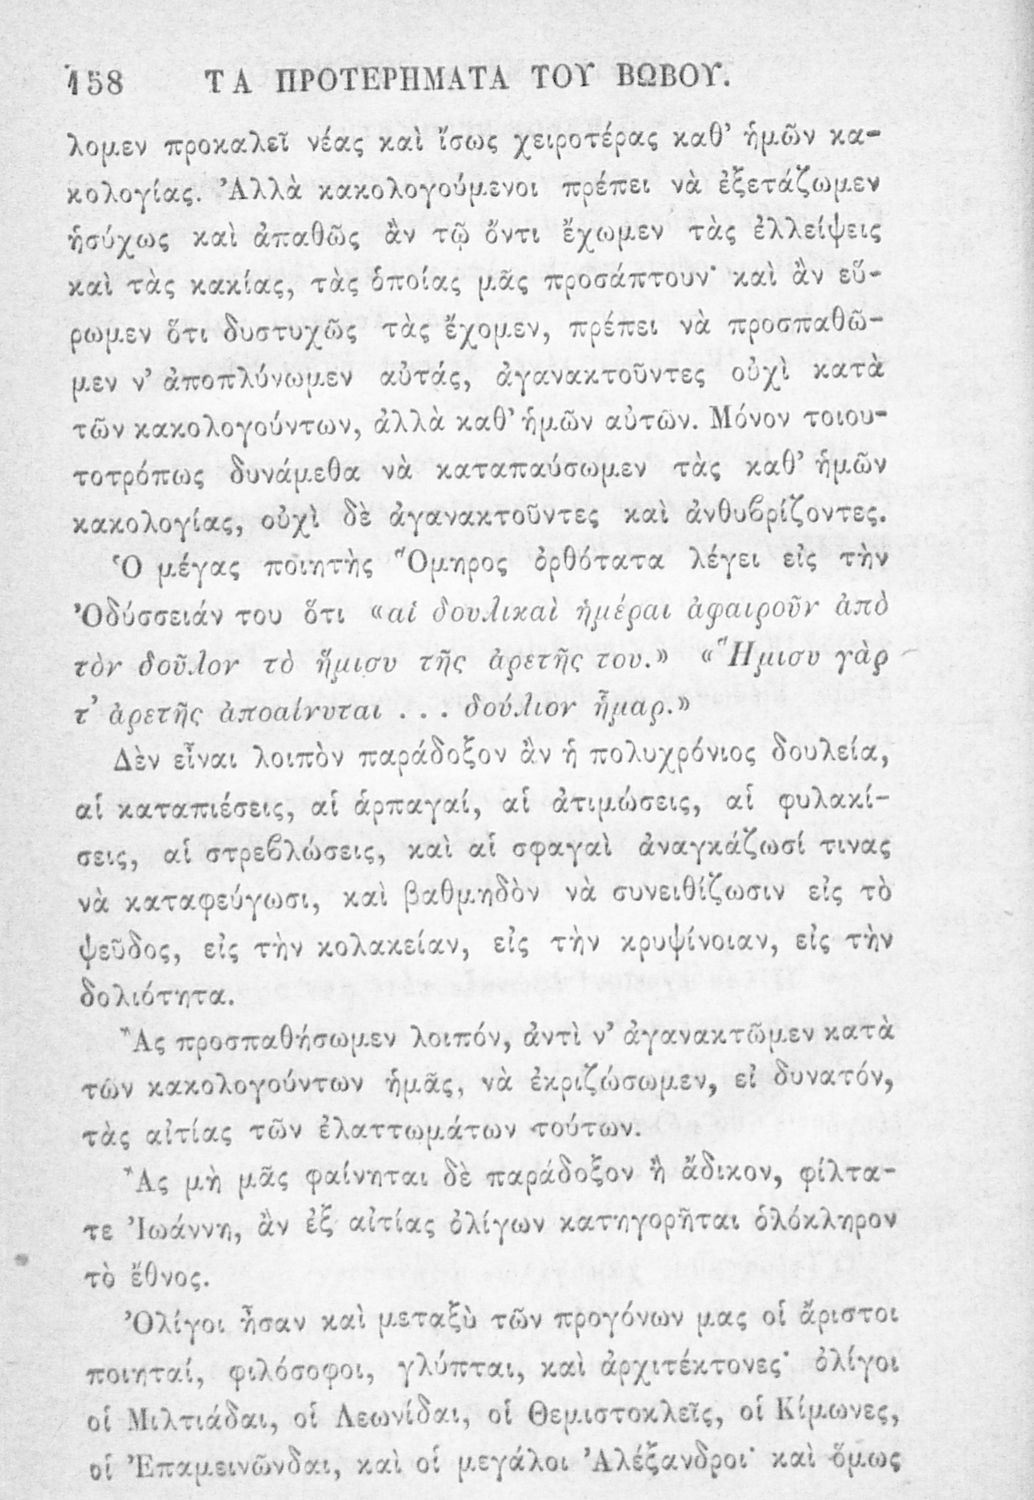 158 ΤΑ ΠΡΟΤΕΡΗΜΑΤΑ ΤΟΥ ΒΩΒΟΥ.
λομεν προκαλεῖ νέας καὶ ἴσως χειροτέρας καθ’ ἡμῶν κα-
κολογίας. Ἀλλὰ κακολογούμενοι πρέπει νὰ ἐξετάζωμεν
ἡσύχως καὶ ἀπαθῶς ἂν τῷ ὄντι ἔχωμεν τὰς ἐλλείψεις
καὶ τὰς κακίας, τὰς ὁποίας μᾶς προσάπτουν· καὶ ἂν εὕ-
ρωμεν ὅτι δυστυχῶς τὰς ἔχομεν, πρέπει νὰ προσπαθῶ-
μεν ν’ ἀποπλύνωμεν αὐτάς, ἀγανακτοῦντες οὐχὶ κατὰ
τῶν κακολογούντων, ἀλλὰ καθ’ ἡμῶν αὐτῶν. Μόνον τοιου-
τοτρόπως δυνάμεθα νὰ καταπαύσωμεν τὰς καθ’ ἡμῶν
κακολογίας, οὐχὶ δὲ ἀγανακτοῦντες καὶ ἀνθυϐρίζοντες.
Ὁ μέγας ποιητὴς Ὅμηρος ὀρθότατα λέγει εἰς τὴν
Ὀδύσσειάν του ὅτι «αἱ δουλικαὶ ἡμέραι ἀφαιροῦν ἀπὸ
τὸν δοῦλον τὸ ἥμισυ τῆς ἀρετῆς του.» «Ἥμισυ γὰρ
τ’ ἀρετῆς ἀποαίνυται . . . δούλιον ἦμαρ.»
Δὲν εἶναι λοιπὸν παράδοξον ἂν ἡ πολυχρόνιος δουλεία,
αἱ καταπιέσεις, αἱ ἁρπαγαί, αἱ ἀτιμώσεις, αἱ φυλακί-
σεις, αἱ στρεϐλώσεις, καὶ αἱ σφαγαὶ ἀναγκάζωσί τινας
νὰ καταφεύγωσι, καὶ βαθμηδὸν νὰ συνειθίζωσιν εἰς τὸ
ψεῦδος, εἰς τὴν κολακείαν, εἰς τὴν κρυψίνοιαν, εἰς τὴν
δολιότητα.
Ἂς προσπαθήσωμεν λοιπόν, ἀντὶ ν’ ἀγανακτῶμεν κατὰ
τῶν κακολογούντων ἡμᾶς, νὰ ἐκριζώσωμεν, εἰ δυνατόν,
τὰς αἰτίας τῶν ἐλαττωμάτων τούτων.
Ἂς μὴ μᾶς φαίνηται δὲ παράδοξον ἢ ἄδικον, φίλτα-
τε Ἰωάννη, ἂν ἐξ αἰτίας ὀλίγων κατηγορῆται ὁλόκληρον
τὸ ἔθνος.
Ὀλίγοι ἦσαν καὶ μεταξὺ τῶν προγόνων μας οἱ ἄριστοι
ποιηταί, φιλόσοφοι, γλύπται, καὶ ἀρχιτέκτονες· ὀλίγοι
οἱ Μιλτιάδαι, οἱ Λεωνίδαι, οἱ Θεμιστοκλεῖς, οἱ Κίμωνες,
οἱ Ἐπαμεινῶνδαι, καὶ οἱ μεγάλοι Ἀλέξανδροι· καὶ ὅμως